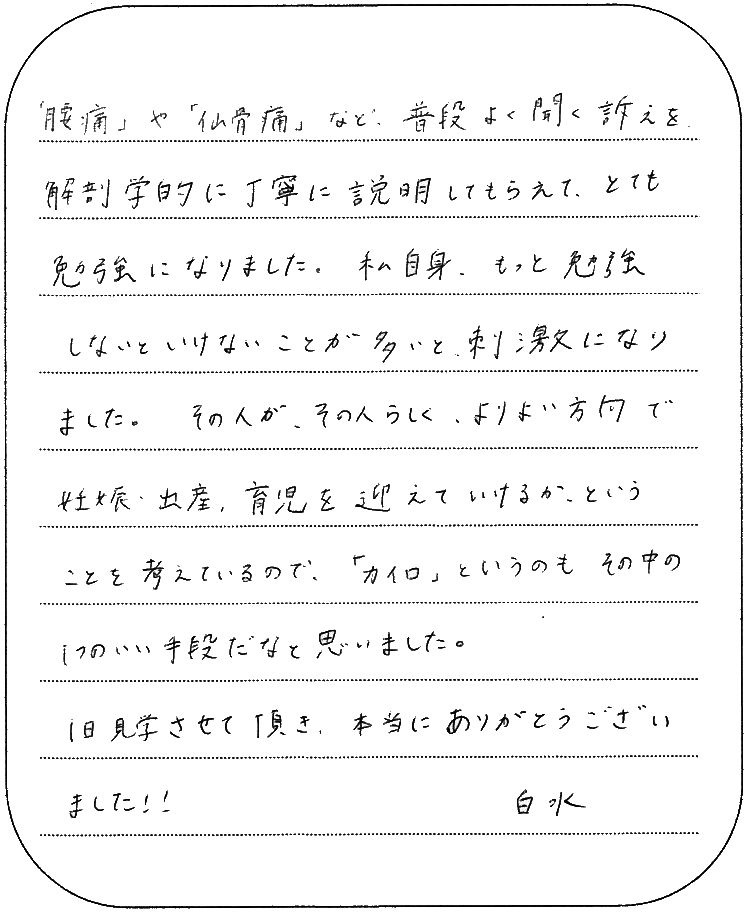 「腰痛」や「仙骨痛」など、普段よく聞く訴えを
解剖学的に丁寧に説明してもらえて、とても
勉強になりました。私自身、もっと勉強
しないといけないことが多いと、刺激になり
ました。その人が、その人らしく、よりよい方向で
妊娠・出産、育児を迎えていけるか、という
ことを考えているので、「カイロ」というのもその中の
1つのいい手段だなと思いました。
1日見学させて頂き、本当にありがとうござい
ました!!
白水